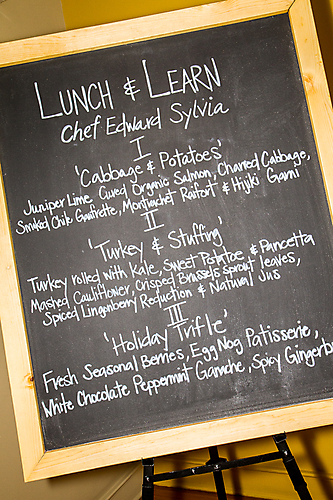 LUNCH & LEARN
Chef Edward Sylvia
I
'Cabbage & Potatoes'
Juniper Lime Cured Organic Salmon, Charred Cabbage,
Smoked Chili Gaufrette, Montrachet Raifort & Hijiki Garni
II
'Turkey & Stuffing'
Turkey rolled with Kale, Sweet Potatoe & Pancetta
Mashed Cauliflower, Crisped Brussels sprout leaves,
Spiced Lingenberry Reduction & Natural Jus
III
'Holiday Trifle'
Fresh Seasonal Berries, Egg Nog Patisserie,
White Chocolate Peppermint Ganache, Spicy Gingerb